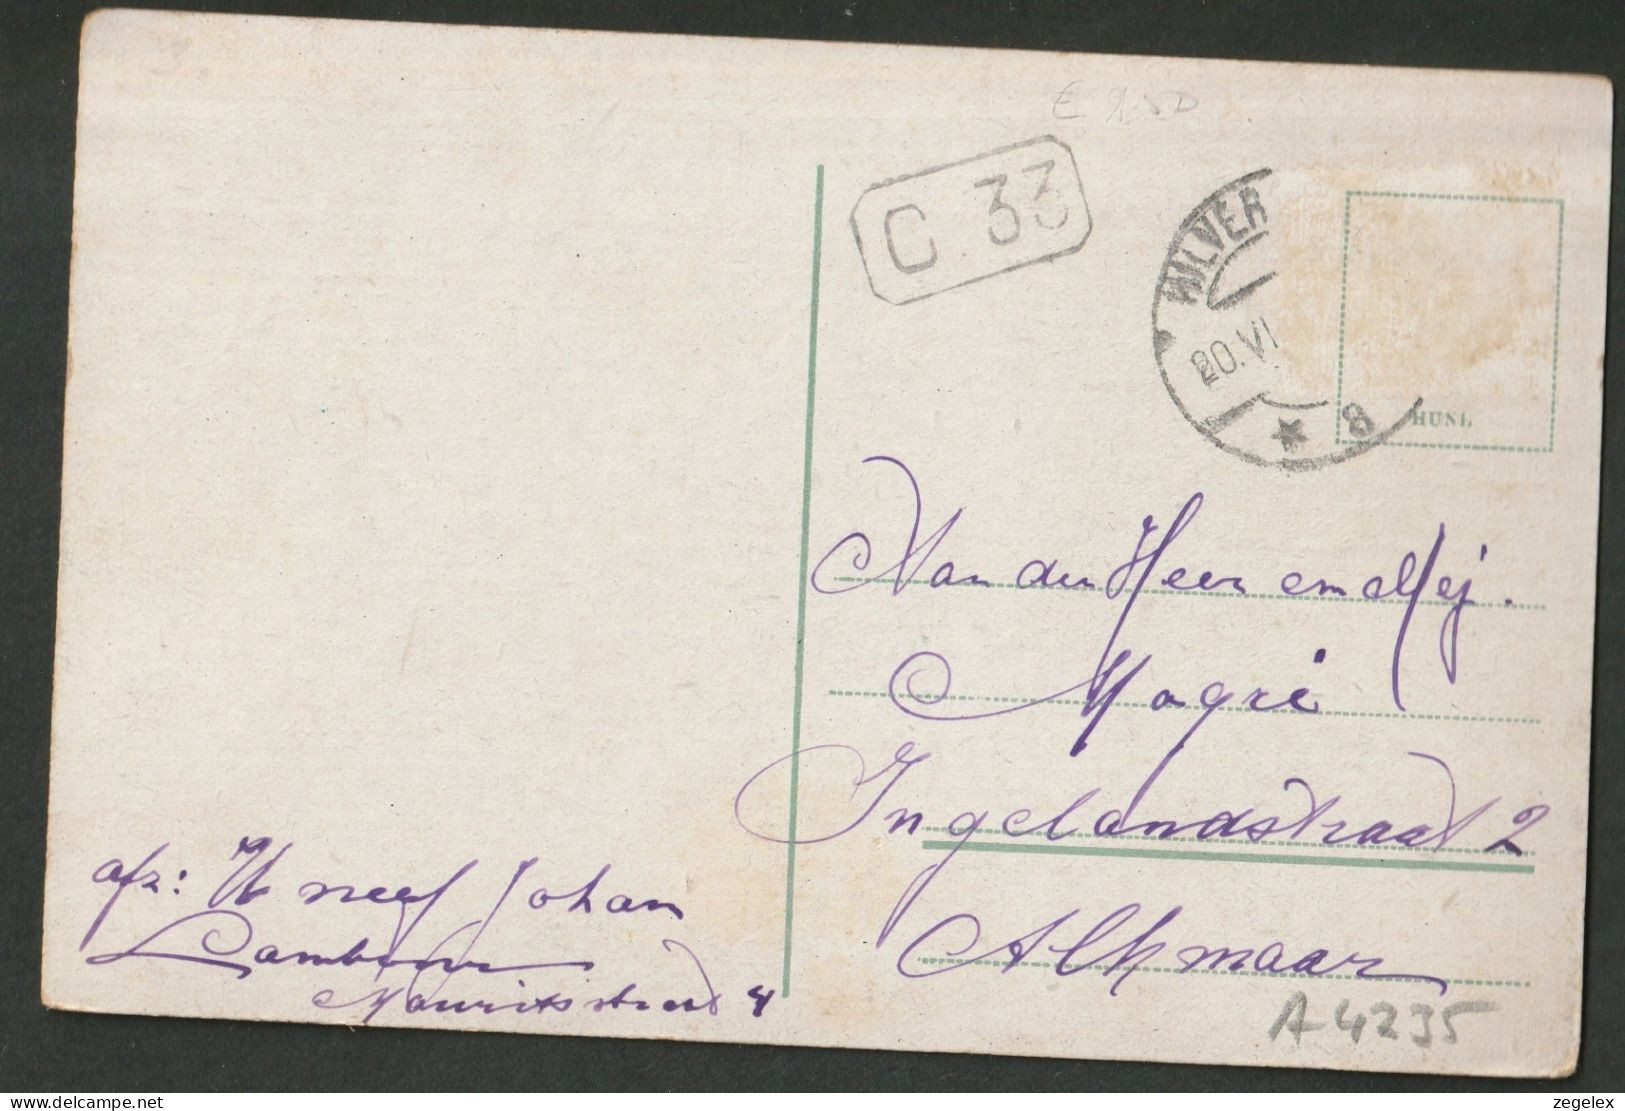 € 2.50
C 33
HILVER
20.VI
8
HUNL
Aan den Heer en Mej.
Magré
Ingelandstraat 2
Alkmaar
afz: Uw neef Johan
Mauritsstraat 4
A4235
© DELCAMPE
zegelex